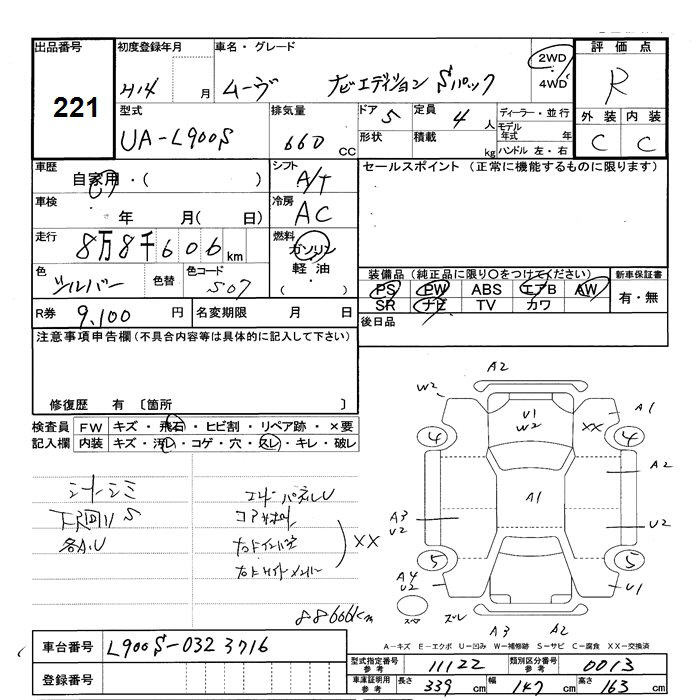 出品番号 初度登録年月 車名・グレード 2WD 評価点
221 H14 月 ムーヴ ナビエディション Sパック 4WD R
型式 排気量 ドア 5 定員 4 人 ディーラー・並行 外装 内装
UA-L900S 660 CC 形状 積載 kg モデル年式 年 C C
ハンドル 左・右
車歴 自家用・( ) シフト A/T セールスポイント(正常に機能するものに限ります)
車検 年 月( 日) 冷房 AC
走行 8万8千606km 燃料 ガソリン
軽油
( ・ )
色 シルバー 色替 色コード S07 装備品(純正品に限り○をつけてください) 新車保証書
PS PW ABS エアB AW 有・無
SR ナビ TV カワ
R券 9,100 円 名変期限 月 日 後日品
注意事項申告欄(不具合内容等は具体的に記入して下さい)
修復歴 有 〔箇所 〕
検査員 FW キズ・飛石・ヒビ割・リペア跡・×要
記入欄 内装 キズ・汚レ・コゲ・穴・スレ・キレ・破レ
シートシミ
下回りS
各A.U
コアサポート
XX
88606km
A2
W2 A1
U1
W2 XX
4 4
A2
A1
A3
U2 U2
5 5
A4
U2 U1
スペア ズレ
A3 A2
A-キズ E-エクボ U-凹み W-補修跡 S-サビ C-腐食 XX-交換済
車台番号 L900S-0323716
登録番号
型式指定番号 参考 11122 類別区分番号 参考 0013
車庫証明用 参考 長さ 339 cm 幅 147 cm 高さ 163 cm